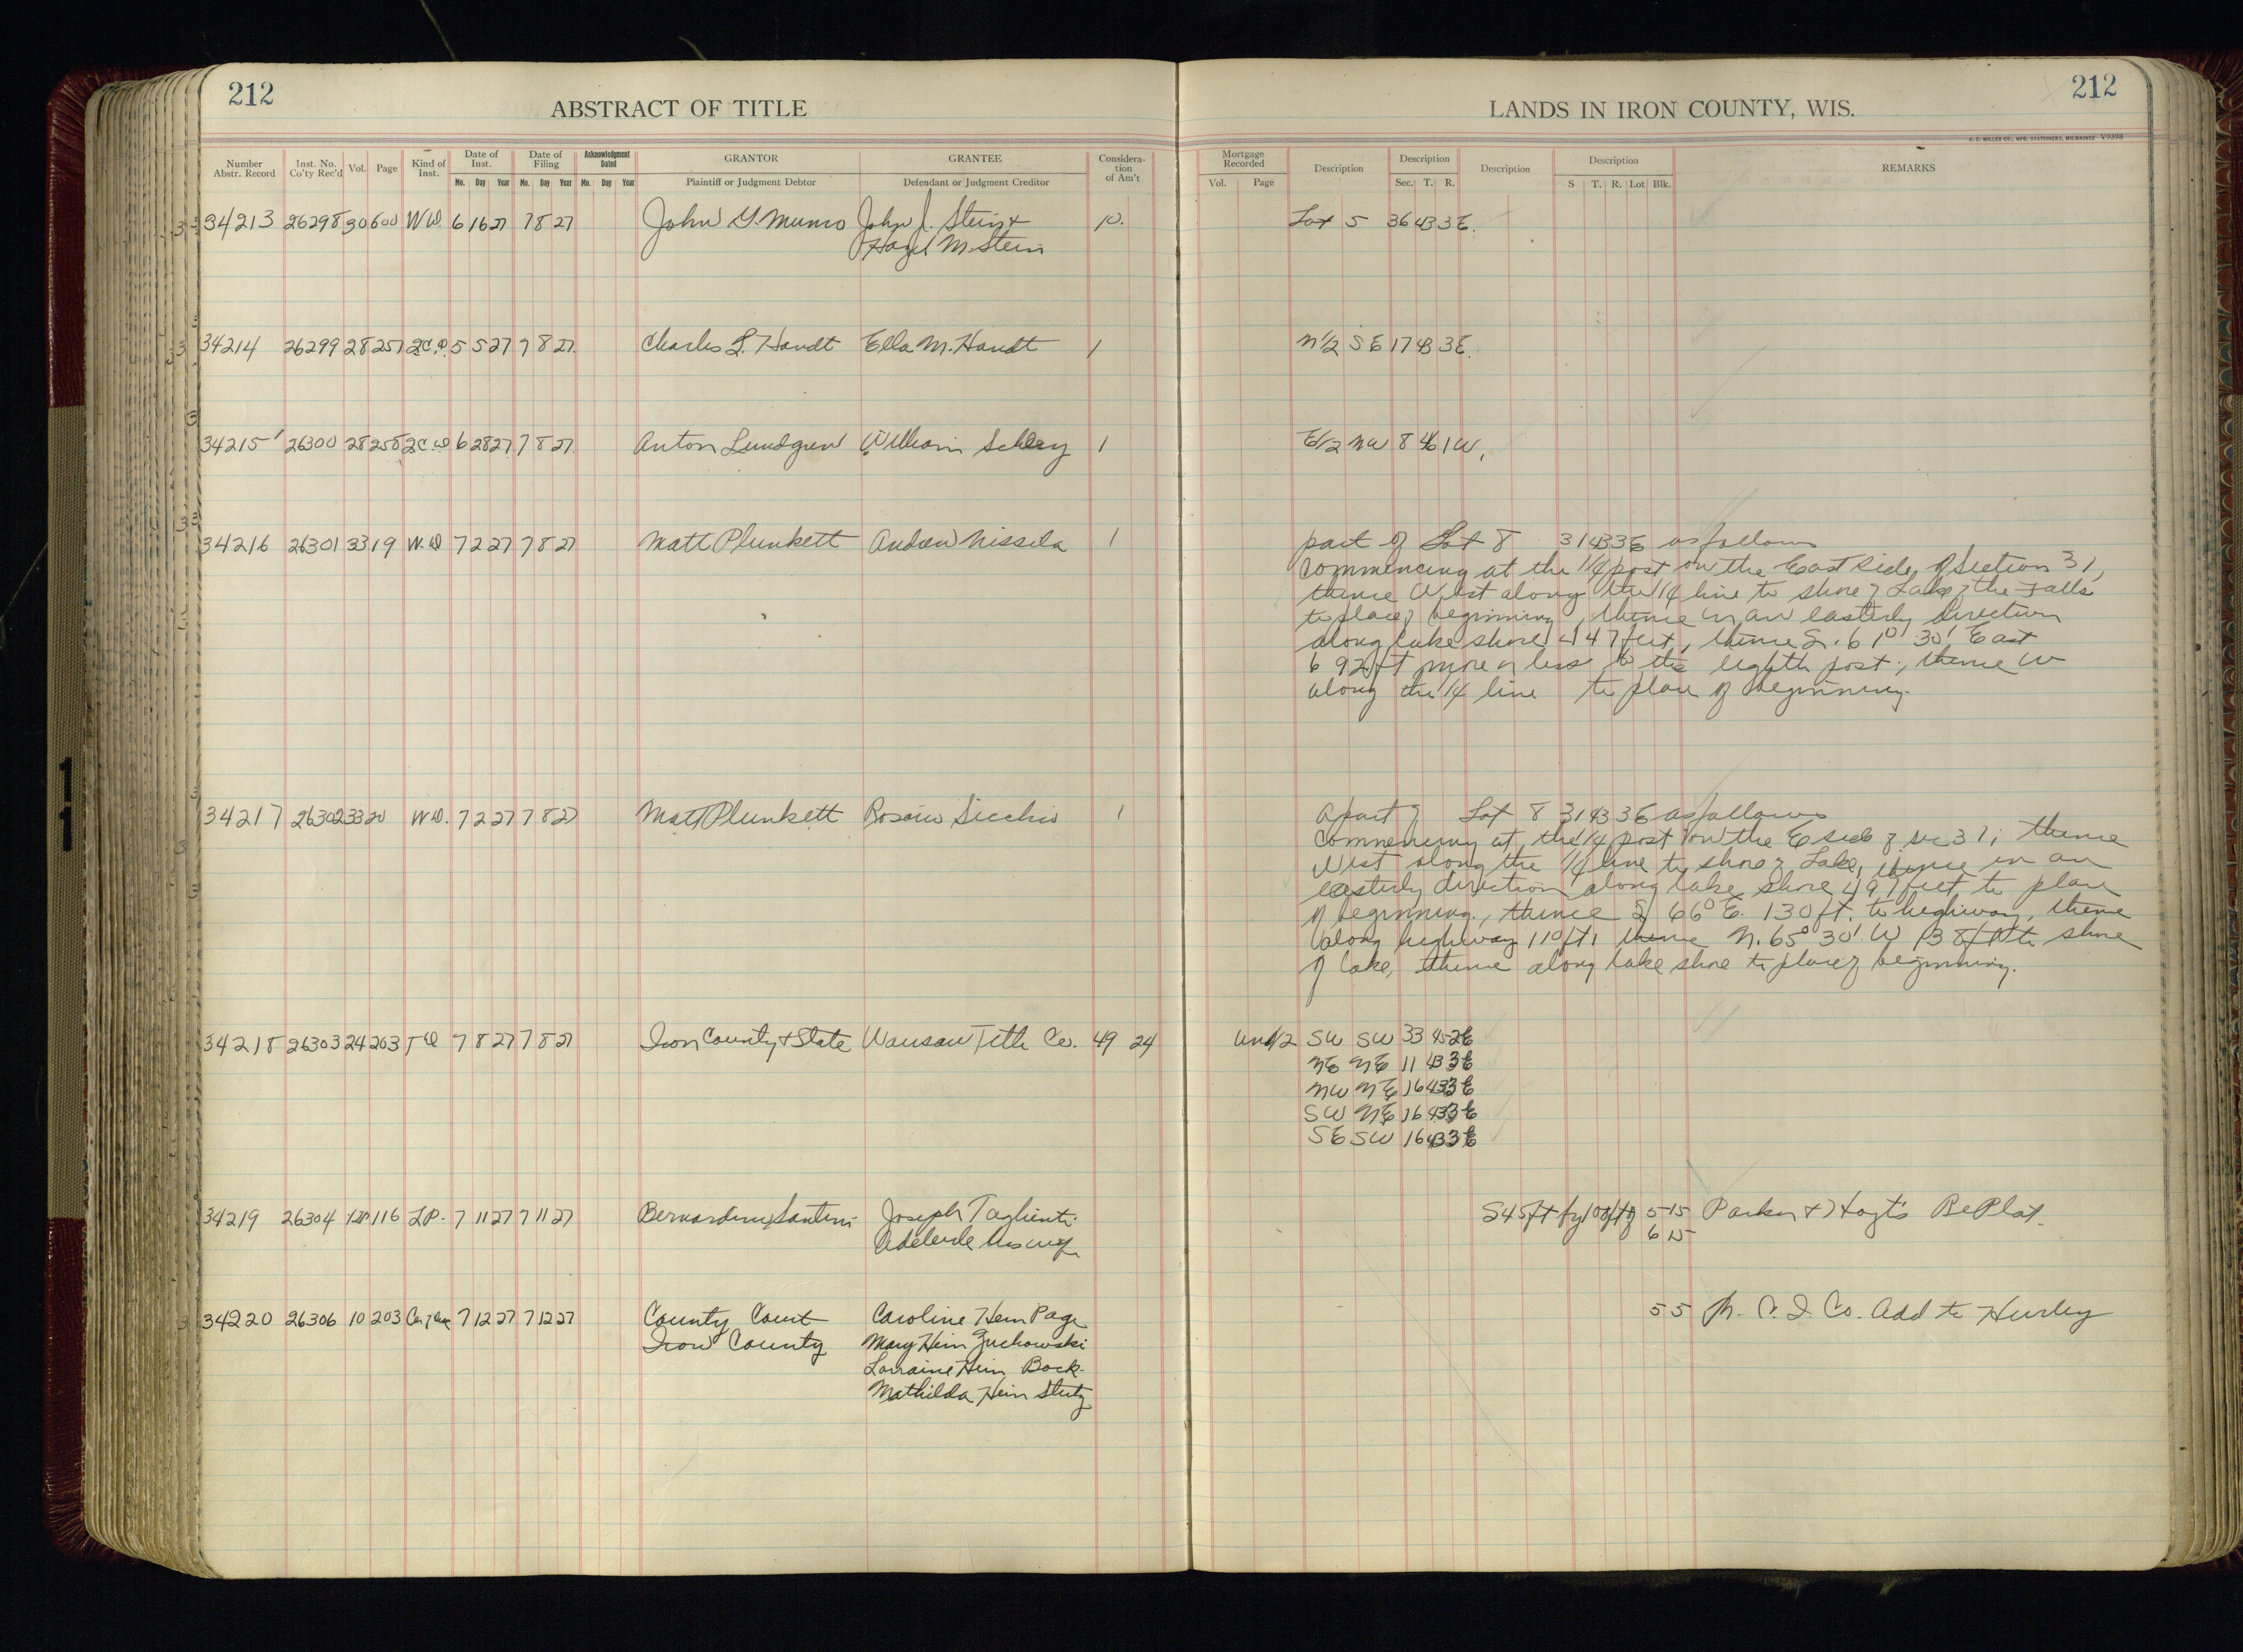 212
ABSTRACT OF TITLE
LANDS IN IRON COUNTY, WIS.
212
H. C. MILLER CO., MFG. STATIONERS, MILWAUKEE V9398
Number Abstr. Record Inst. No. Co'ty Rec'd Vol. Page Kind of Inst. Date of Inst. Mo. Day Year Date of Filing Mo. Day Year Acknowledgment Dated Mo. Day Year GRANTOR Plaintiff or Judgment Debtor GRANTEE Defendant or Judgment Creditor Considera-tion of Am't Mortgage Recorded Vol. Page Description Description Sec. T. R. Description Description S T. R. Lot Blk. REMARKS
34213 26298 30 600 W D. 6 16 27 7 8 27 John G. Munro John J. Stein & 10. Lot 5 36 43 3E.
Hazel M. Stein
34214 26299 28 257 2C.D. 5 5 27 7 8 27. Charles L. Handt Ella M. Handt 1 N 1/2 SE 17 43 3E.
34215 26300 28 258 2C.D 6 28 27 7 8 27. Anton Lundgren William 1 E 1/2 NW 8 46 1W.
34216 26301 33 19 W. D 7 2 27 7 8 27 Matt Plunkett Andrew Nissila 1 part of Lot 8 31 43 3E as follows
Commencing at the 1/4 post on the East side of Section 31,
thence West along the 1/4 line to shore of Lake of the Falls
to place of beginning, thence in an easterly direction
along lake shore 447 feet, thence S. 61° 30' East
692 ft more or less to the eighth post; thence W
along the 1/4 line to place of beginning.
34217 26302 33 20 W D. 7 2 27 7 8 27 Matt Plunkett Rosario Sicchio 1 A part of Lot 8 31 43 3E as follows
Commencing at the 1/4 post on the E side of sec 31; thence
West along the 1/4 line to shore of Lake, thence in an
easterly direction along lake shore 497 feet to place
of beginning, thence S 66° E. 130 ft. to highway, thence
along highway 110 ft, thence N. 65° 30' W 138 ft to shore
of lake, thence along lake shore to place of beginning.
34218 26303 24 203 T D 7 8 27 7 8 27 Iron County & State Wausau Title Co. 49 24 Und 1/2 SW SW 33 45 2E
NE NE 11 43 3E
NW NE 16 43 3E
SW NE 16 43 3E
SE SW 16 43 3E
34219 26304 116 LP. 7 11 27 7 11 27 Santini Joseph Taglienti S 45 ft of 5 15 Parker & Hoyt's RePlat.
Adelende 6 15
34220 26306 10 203 7 12 27 7 12 27 County Court Caroline Hein Page 5 5 Co. Add to Hurley
Iron County Mary Hein Zuchowski
Lorraine Hein Bock.
Mathilda Hein Stutz